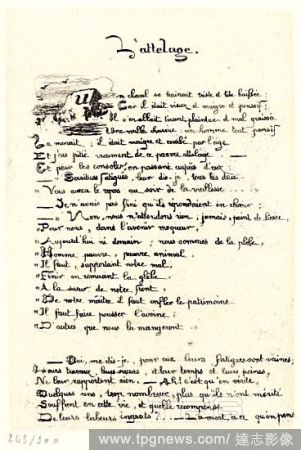 L'attelage.
Un cheval se trainait triste et tête baissée :
Car il était vieux et maigre et poussif ;
Il s'en allait tirant, plaintive et mal graissée
Une vieille charrue : un homme tout pensif
La menait ; il était maigre et courbé par l'age
Et j'eus pitié vraiment de ce pauvre attelage. —
Et pour les consoler, en passant auprès d'eux
— Serviteurs fatigués, leur dis-je, tous les deux
" Vous aurez le repos au soir de la vieillesse
— Je n'avais pas fini qu'ils répondaient en chœur ;
— " Non, nous n'attendons rien, jamais, point de liesse
" Pour nous, dans l'avenir moqueur,
" Aujourd'hui ni demain ; nous sommes de la plèbe,
" Homme pauvre, pauvre animal
" Il faut, supportant notre mal,
" Finir en remuant la glèbe
" A la sueur de notre front.
" De notre maître il faut enfler le patrimoine
" Il faut faire pousser l'avoine :
" D'autres que nous la mangeront
— Oui, me dis-je, pour eux leurs fatigues sont vaines ;
Leurs travaux journaliers, et leur temps et leurs peines,
Ne leur rapportent rien. — Ah ! c'est qu'en vérité,
Quelques uns, trop nombreux, plus qu'ils n'ont mérité
Souffrent en cette vie, et quelle récompense
De leurs labeurs ingrats ? — La mort, à ce qu'on pense
243/300
www.tpgnews.com / 達志影像